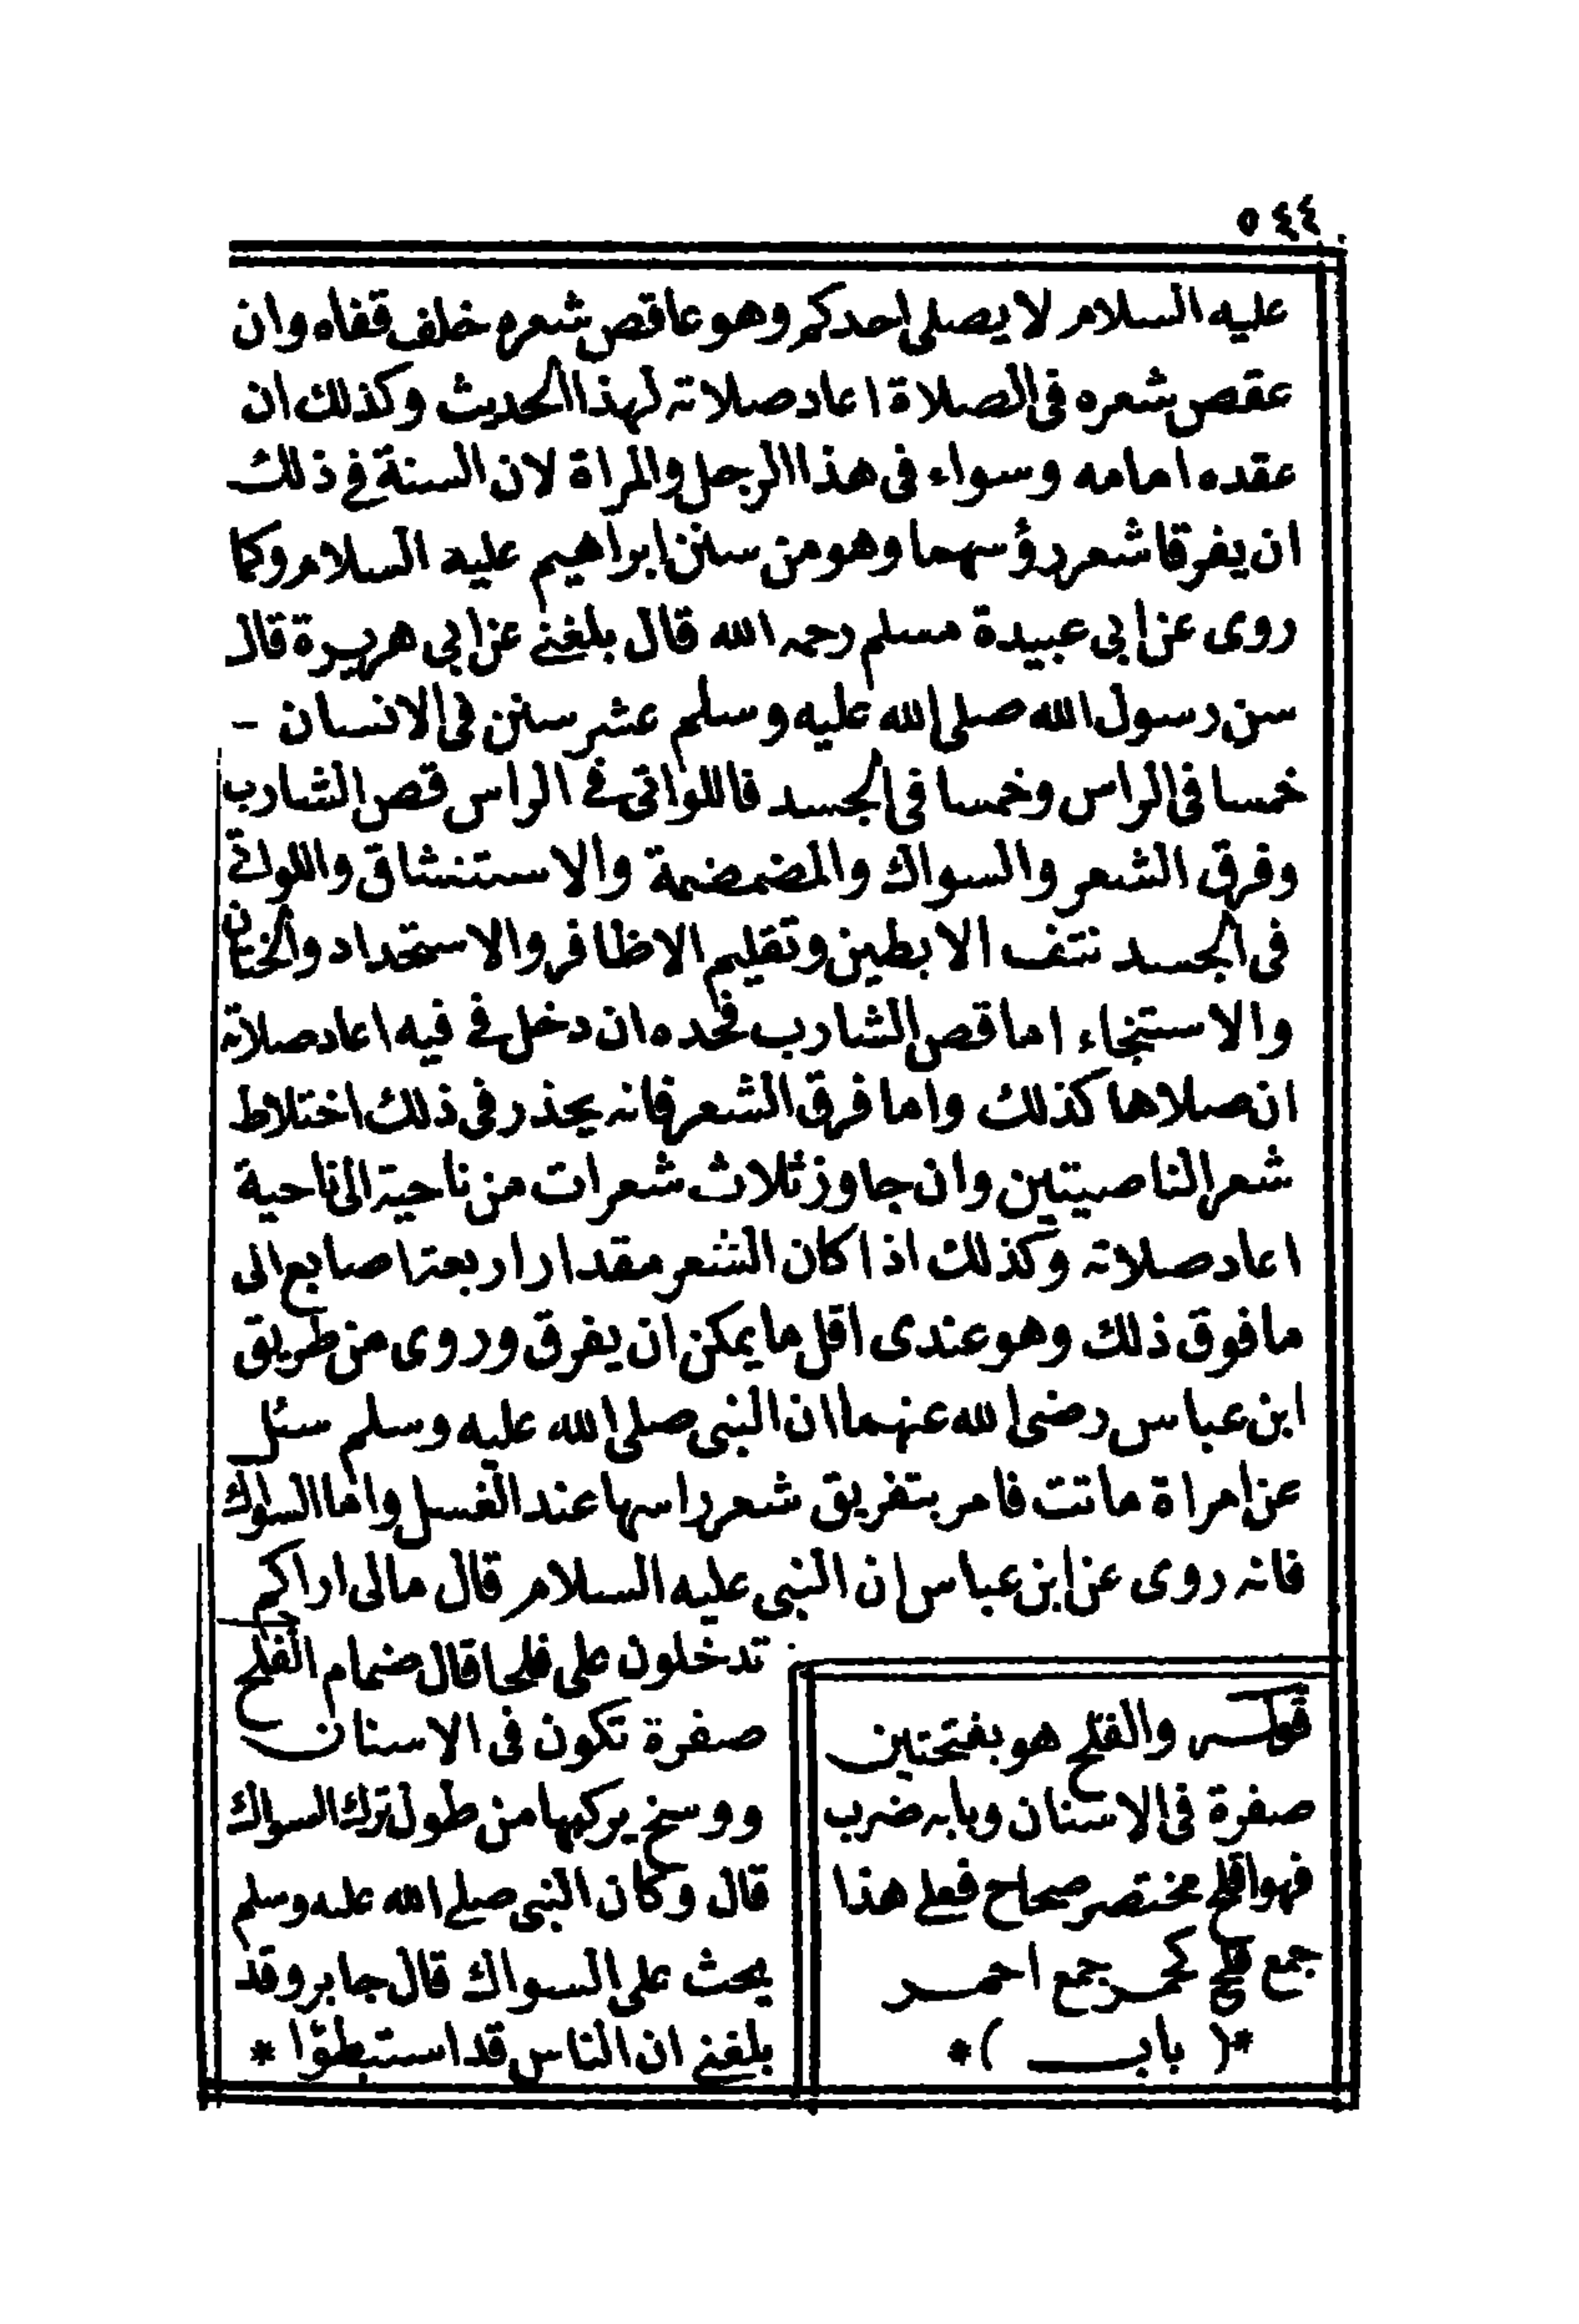 ٥٤٤
عليه السلام لا يصلى احدكم وهو عاقص شعره خلف قفاه وان
عقص شعره فى الصلاة اعاد صلاته لهذا الحديث وكذلك ان
عقده امامه وسواء فى هذا الرجل والمراة لان السنة في ذلك
ان يفرقا شعر رؤسهما وهو من سنن ابراهيم عليه السلام وكما
روى عن ابي عبيدة مسلم رحمه الله قال بلغني عن ابي هريرة قال
سن رسول الله صلى الله عليه وسلم عشر سنن فى الانسان -
خمسا فى الراس وخمسا فى الجسد فاللواتى في الراس قص الشارب
وفرق الشعر والسواك والمضمضمة والاستنشاق واللواتي
فى الجسد نتف الابطين وتقليم الاظافر والاستحداد والختان
والاستنجاء اما قص الشارب فحده ان دخل في فيه اعاد صلاته
ان صلاها كذلك واما فرق الشعر فانه يحذر فى ذلك اختلاط
شعر الناصيتين وان جاوز ثلاث شعرات من ناحية الى ناحية
اعاد صلاته وكذلك اذا كان الشعر مقدار اربعة اصابع الى
ما فوق ذلك وهو عندى اقل ما يمكن ان يفرق وروى من طريق
ابن عباس رضى الله عنهما ان النبى صلى الله عليه وسلم سئل
عن امراة ماتت فامر بتفريق شعر راسها عند الغسل واما السواك
فانه روى عن ابن عباس ان النبى عليه السلام قال مالى اراكم
تدخلون على قلحا قال ضمام القلح
صفرة تكون فى الاسنان
ووسخ يركبها من طول ترك السواك
قال وكان النبى صلى الله عليه وسلم
يحث على السواك قال جابر وقد
بلغني ان الناس قد استبطؤا *
قوله والقلح هو بفتحتين
صفرة فى الاسنان وبابه ضرب
فهو اقلح مختصر صحاح فعلى هذا
جمع قلح كحمر جمع احمر
*( باب )*